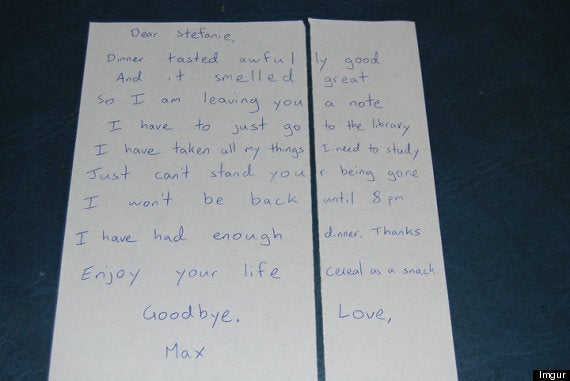 Dear Stefanie,
Dinner tasted awfully good
And it smelled great.
So I am leaving you a note
I have to just go to the library
I have taken all my things I need to study
Just can't stand your being gone
I won't be back until 8 pm
I have had enough dinner. Thanks
Enjoy your life cereal as a snack
Goodbye. Love,
Max
Imgur